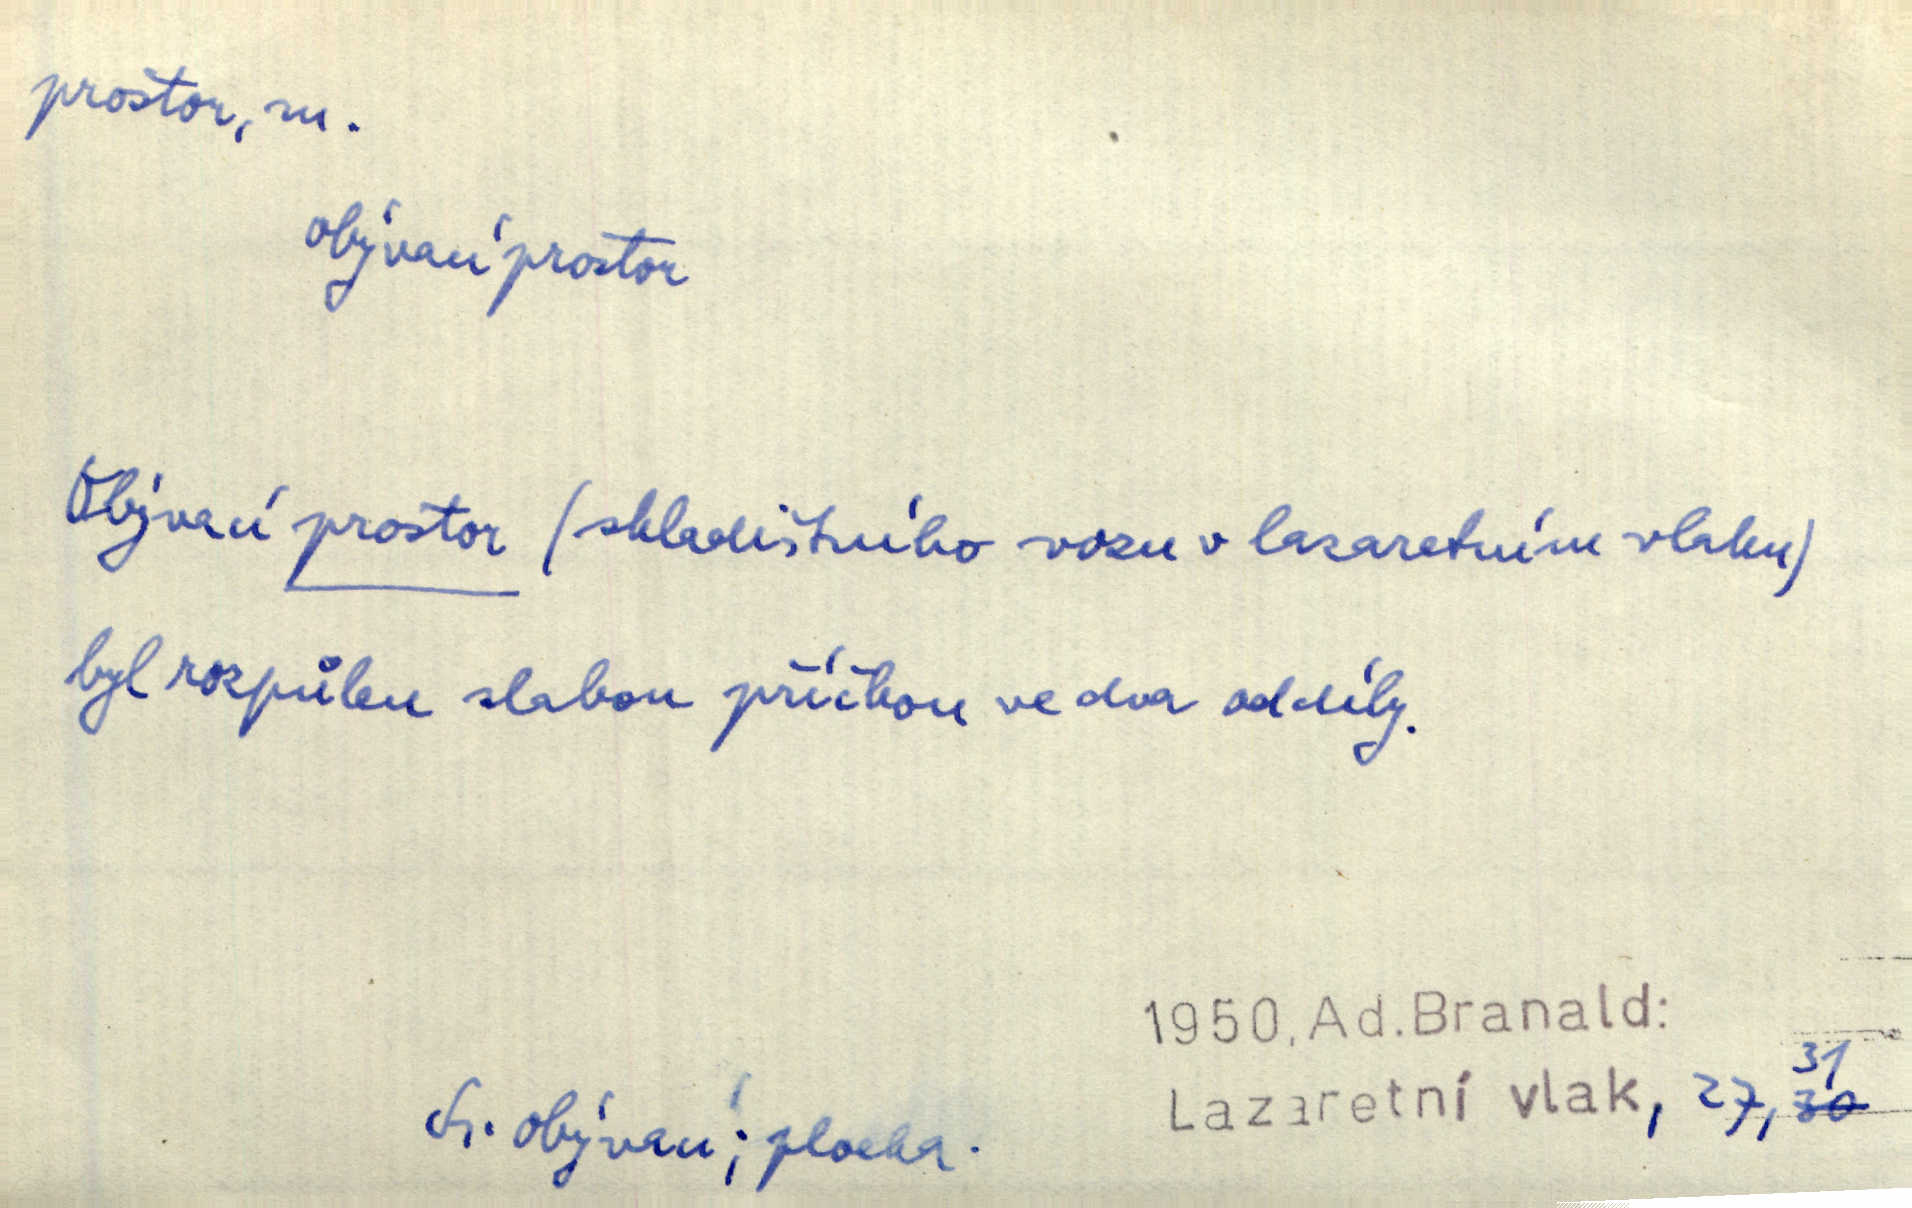 prostor, m.
obývací prostor
Obývací prostor (skladištního vozu v lazaretním vlaku)
byl rozpůlen slabou příčkou ve dva oddíly.
1950, Ad. Branald:
31
Lazaretní vlak, 27, 30
Sr. obývací; plocha.